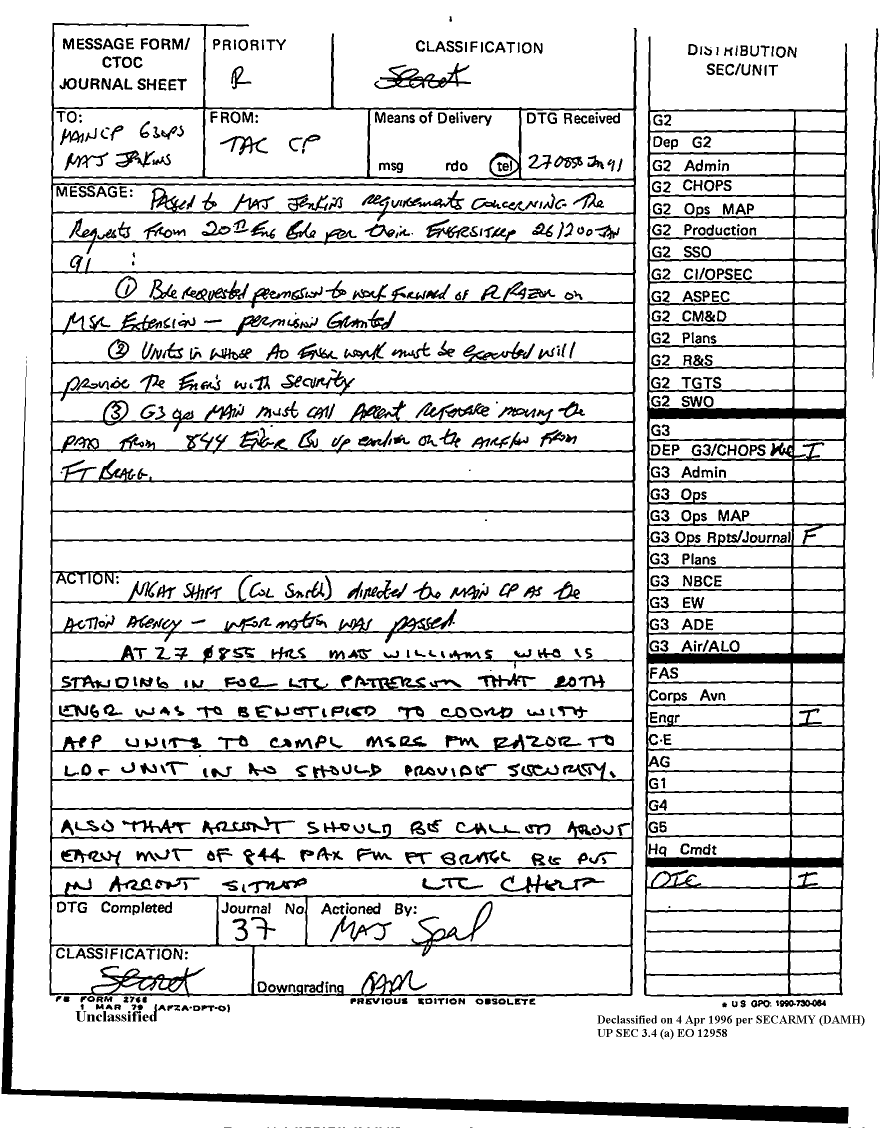 MESSAGE FORM/
CTOC
JOURNAL SHEET
PRIORITY
R
CLASSIFICATION
Secret
TO:
MAIN CP G3 OPS
MAJ Jenkins
FROM:
TAC CP
Means of Delivery
msg rdo tel
DTG Received
270858 Jan 91
MESSAGE: Passed to MAJ Jenkins requirements concerning The
Requests From 20th Eng Bde per their ENGRSITREP 261200 JAN
91 :
① Bde requested permission to work forward of PL RAZOR on
MSR Extension — permision Granted
② Units in whose AO Engr work must be executed will
provide The Engrs with Security
③ G3 ops MAIN must CALL Arcent Reference moving the
PAX From 844 Engr Bn up earlier on the AIRFLOW From
FT BRAGG.
ACTION: NIGHT SHIFT (Col Smith) directed the MAIN CP AS the
ACTION AGENCY — information was passed
AT 27 0855 HRS MAJ WILLIAMS WHO IS
STANDING IN FOR LTC PATTERSON THAT 20TH
ENGR WAS TO BE NOTIFIED TO COORD WITH
APP UNITS TO COMPL MSRS FM RAZOR TO
LD. UNIT IN AO SHOULD PROVIDE SECURITY.
ALSO THAT ARCENT SHOULD BE CALLED ABOUT
EARLY MVT OF 844 PAX FM FT BRAGG BE PUT
IN ARCENT SITREP LTC
DTG Completed
Journal No
37
Actioned By:
MAJ
CLASSIFICATION:
Secret
Downgrading OADR
FB FORM 2768
1 MAR 79 (AFZA-DPT-O)
PREVIOUS EDITION OBSOLETE
Unclassified
DISTRIBUTION
SEC/UNIT
G2
Dep G2
G2 Admin
G2 CHOPS
G2 Ops MAP
G2 Production
G2 SSO
G2 CI/OPSEC
G2 ASPEC
G2 CM&D
G2 Plans
G2 R&S
G2 TGTS
G2 SWO
G3
DEP G3/CHOPS I
G3 Admin
G3 Ops
G3 Ops MAP
G3 Ops Rpts/Journal F
G3 Plans
G3 NBCE
G3 EW
G3 ADE
G3 Air/ALO
FAS
Corps Avn
Engr I
C-E
AG
G1
G4
G5
Hq Cmdt
OIC I
★ U S GPO: 1990-730-064
Declassified on 4 Apr 1996 per SECARMY (DAMH)
UP SEC 3.4 (a) EO 12958